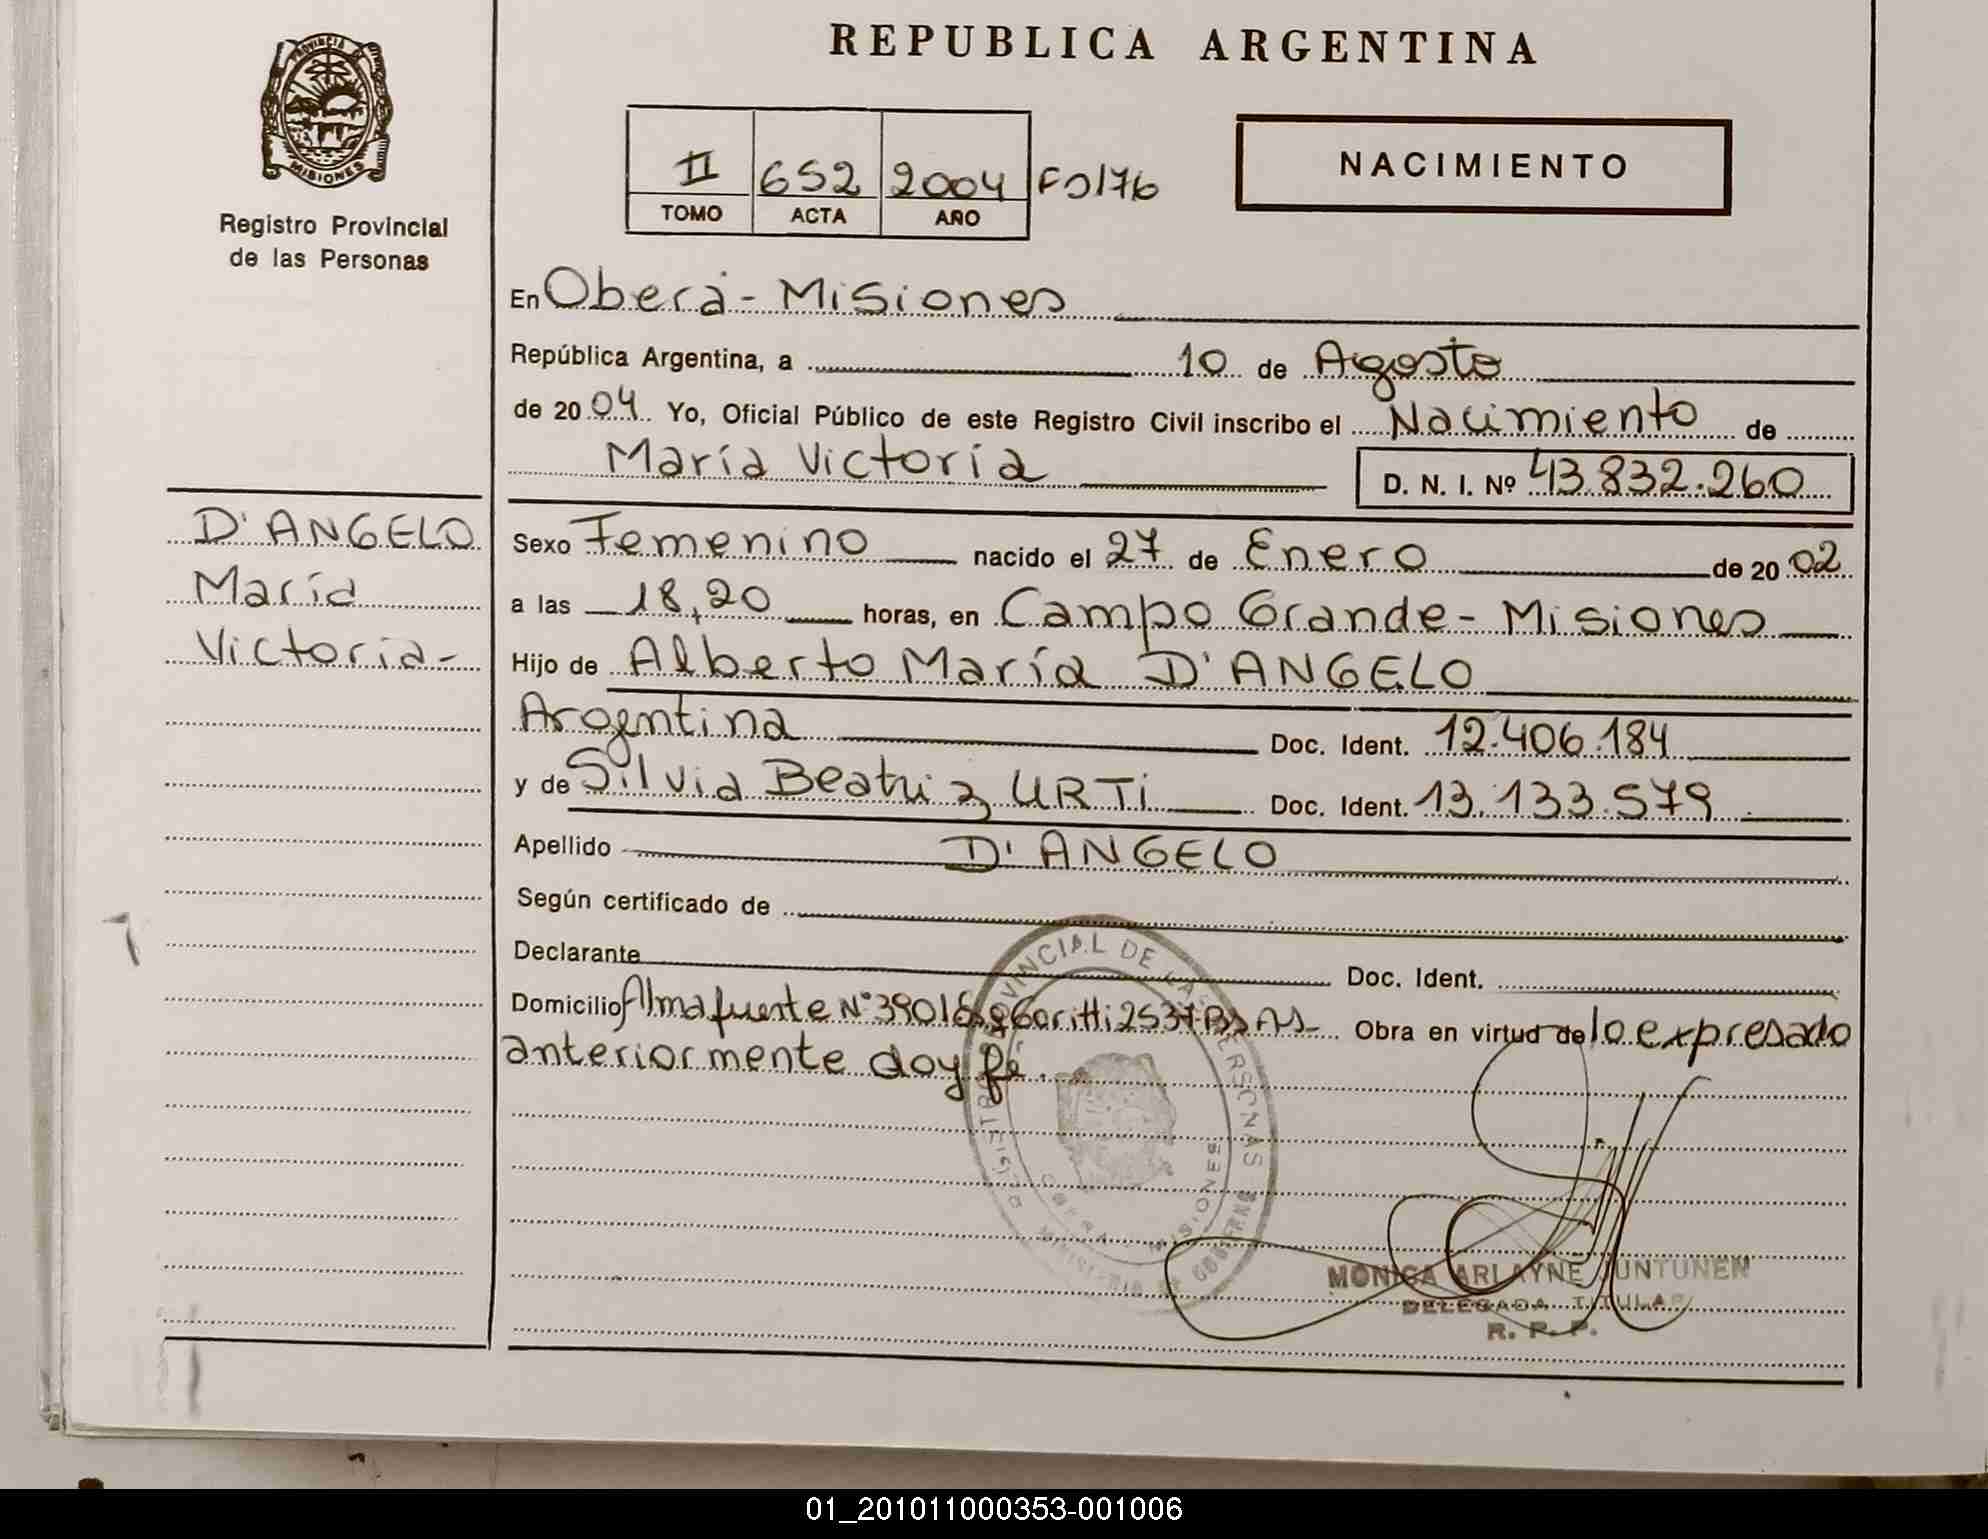 REPUBLICA ARGENTINA
PROVINCIA DE
MISIONES
Registro Provincial
de las Personas
II 652 2004 Fº176
TOMO ACTA AÑO
NACIMIENTO
En Oberá - Misiones
República Argentina, a 10 de Agosto
de 2004 Yo, Oficial Público de este Registro Civil inscribo el Nacimiento de
María Victoria D. N. I. Nº 43.832.260
D'ANGELO
María
Victoria-
Sexo Femenino nacido el 27 de Enero de 2002
a las 18,20 horas, en Campo Grande - Misiones
Hijo de Alberto María D'ANGELO
Argentina Doc. Ident. 12.406.184
y de Silvia Beatriz URTi Doc. Ident. 13.133.579
Apellido D'ANGELO
Según certificado de
Declarante Doc. Ident.
Domicilio Almafuente Nº 3901 Goritti 2537 Bs As- Obra en virtud de lo expresado
anteriormente doy fé.
REGISTRO PROVINCIAL DE LAS PERSONAS
OBERA - MISIONES
MINISTERIO DE GOBIERNO
MONICA ARLAYNE JUNTUNEN
DELEGADA TITULAR
R. P. P.
01_201011000353-001006